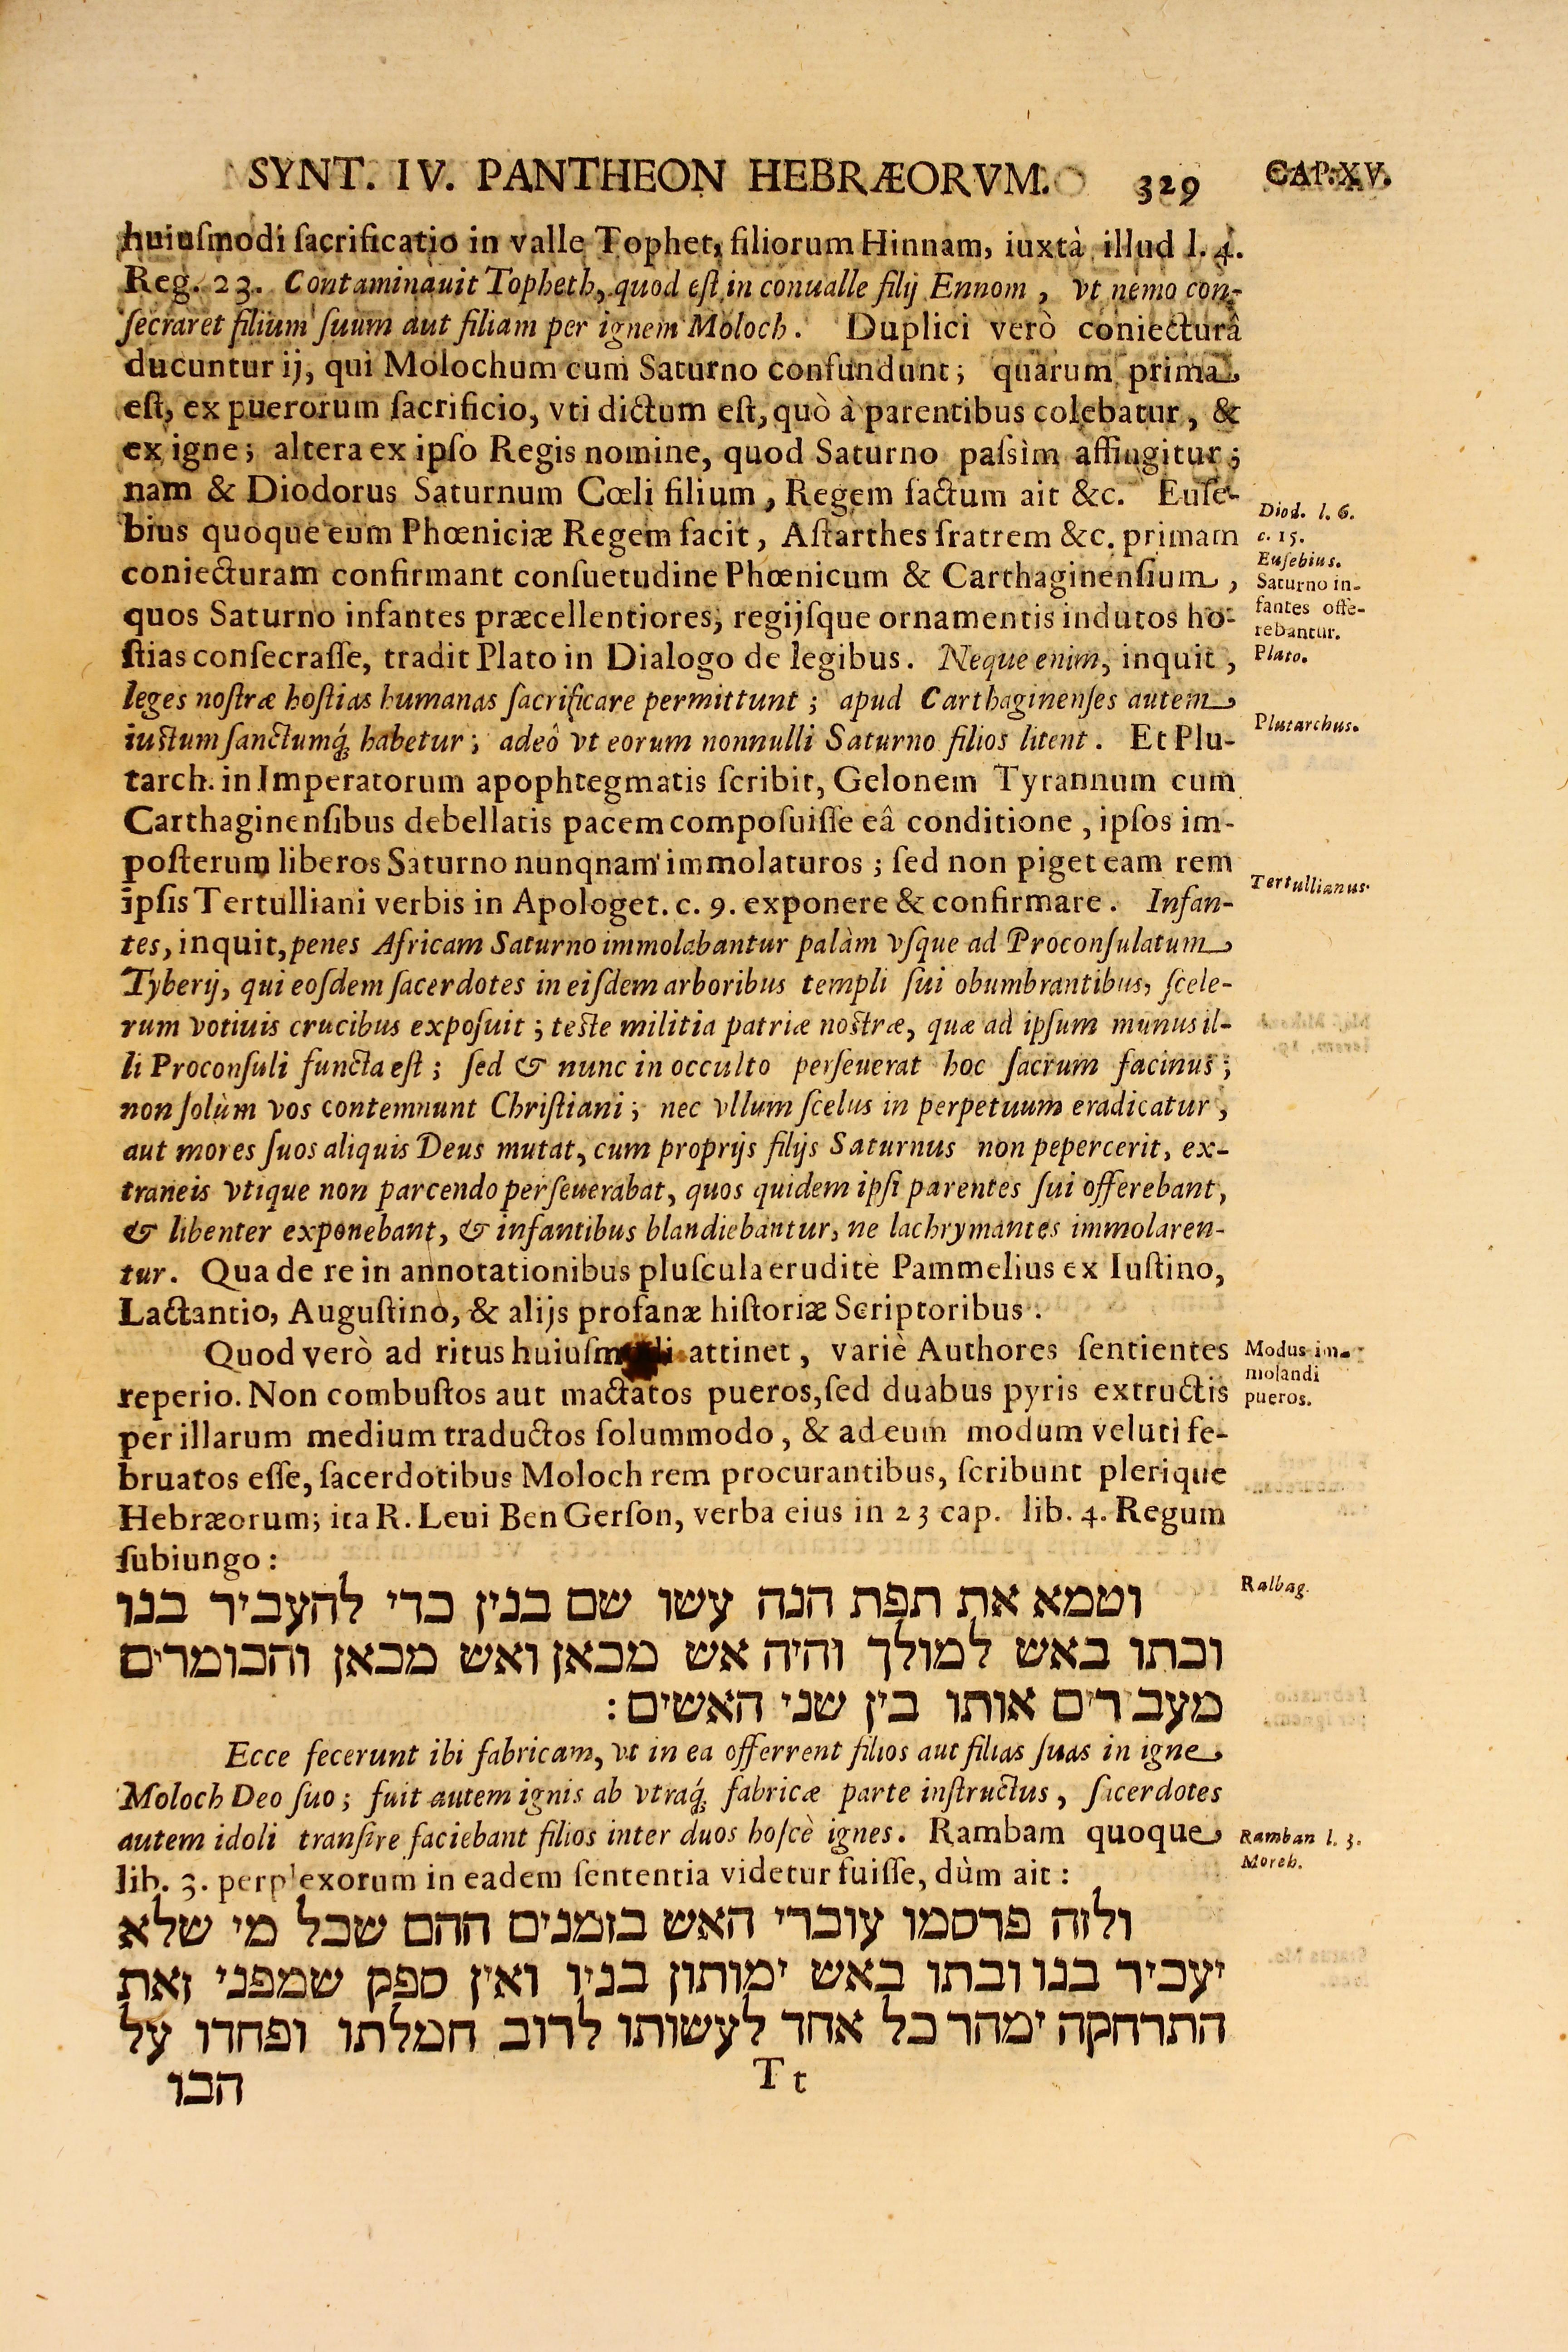 SYNT. IV. PANTHEON HEBRÆORVM. 329 CAP. XV.
huiuſmodi ſacrificatio in valle Tophet, filiorum Hinnam, iuxtà illud l. 4.
Reg. 23. Contaminauit Topheth, quod eſt in conualle filij Ennom, vt nemo con-
ſecraret filium ſuum aut filiam per ignem Moloch. Duplici verò coniecturâ
ducuntur ij, qui Molochum cum Saturno confundunt; quarum prima
eſt, ex puerorum ſacrificio, vti dictum eſt, quò à parentibus colebatur, &
ex igne; altera ex ipſo Regis nomine, quod Saturno paſsìm affingitur;
nam & Diodorus Saturnum Cœli filium, Regem factum ait &c. Euſe-
bius quoque eum Phœniciæ Regem facit, Aſtarthes fratrem &c. primam
coniecturam confirmant conſuetudine Phœnicum & Carthaginenſium,
quos Saturno infantes præcellentiores, regijſque ornamentis indutos ho-
ſtias conſecraſſe, tradit Plato in Dialogo de legibus. Neque enim, inquit,
leges noſtræ hoſtias humanas ſacrificare permittunt; apud Carthaginenſes autem
iuſtum ſanctumq́; habetur; adeò vt eorum nonnulli Saturno filios litent. Et Plu-
tarch. in Imperatorum apophtegmatis ſcribit, Gelonem Tyrannum cum
Carthaginenſibus debellatis pacem compoſuiſſe eâ conditione, ipſos im-
poſterum liberos Saturno nunqnam immolaturos; ſed non piget eam rem
ipſis Tertulliani verbis in Apologet. c. 9. exponere & confirmare. Infan-
tes, inquit, penes Africam Saturno immolabantur palàm vſque ad Proconſulatum
Tyberij, qui eoſdem ſacerdotes in eiſdem arboribus templi ſui obumbrantibus, ſcele-
rum votiuis crucibus expoſuit; teſte militia patriæ noſtræ, quæ ad ipſum munus il-
li Proconſuli functa eſt; ſed & nunc in occulto perſeuerat hoc ſacrum facinus;
non ſolùm vos contemnunt Chriſtiani; nec vllum ſcelus in perpetuum eradicatur,
aut mores ſuos aliquis Deus mutat, cum proprijs filijs Saturnus non pepercerit, ex-
traneis vtique non parcendo perſeuerabat, quos quidem ipſi parentes ſui offerebant,
& libenter exponebant, & infantibus blandiebantur, ne lachrymantes immolaren-
tur. Qua de re in annotationibus pluſcula erudite Pammelius ex Iuſtino,
Lactantio, Auguſtino, & alijs profanæ hiſtoriæ Scriptoribus.
Quod verò ad ritus attinet, variè Authores ſentientes
reperio. Non combuſtos aut mactatos pueros, ſed duabus pyris extructis
per illarum medium traductos ſolummodo, & ad eum modum veluti fe-
bruatos eſſe, ſacerdotibus Moloch rem procurantibus, ſcribunt plerique
Hebræorum; ita R. Leui Ben Gerſon, verba eius in 23 cap. lib. 4. Regum
ſubiungo:
וטמא את תפת הנה עשו שם בנין כדי להעביר בנו
ובתו באש למולך והיה אש מכאן ואש מכאן והכומרים
מעבירים אותו בין שני האשים:
Ecce fecerunt ibi fabricam, vt in ea offerrent filios aut filias ſuas in igne
Moloch Deo ſuo; fuit autem ignis ab vtraq́; fabricæ parte inſtructus, ſacerdotes
autem idoli tranſire faciebant filios inter duos hoſcè ignes. Rambam quoque
lib. 3. perplexorum in eadem ſententia videtur fuiſſe, dùm ait:
ולזה פרסמו עובדי האש בזמנים ההם שכל מי שלא
יעביר בנו ובתו באש ימותון בניו ואין ספק שמפני זאת
התרחקה ימהר כל אחד לעשותו לרוב חמלתו ופחדו על
Tt
הבו
Diod. l. 6.
c. 15.
Euſebius.
Saturno in-
fantes offe-
rebantur.
Plato.
Plutarchus.
Tertullianus.
Modus im-
molandi
pueros.
Ralbag.
Ramban l. 3.
Moreh.